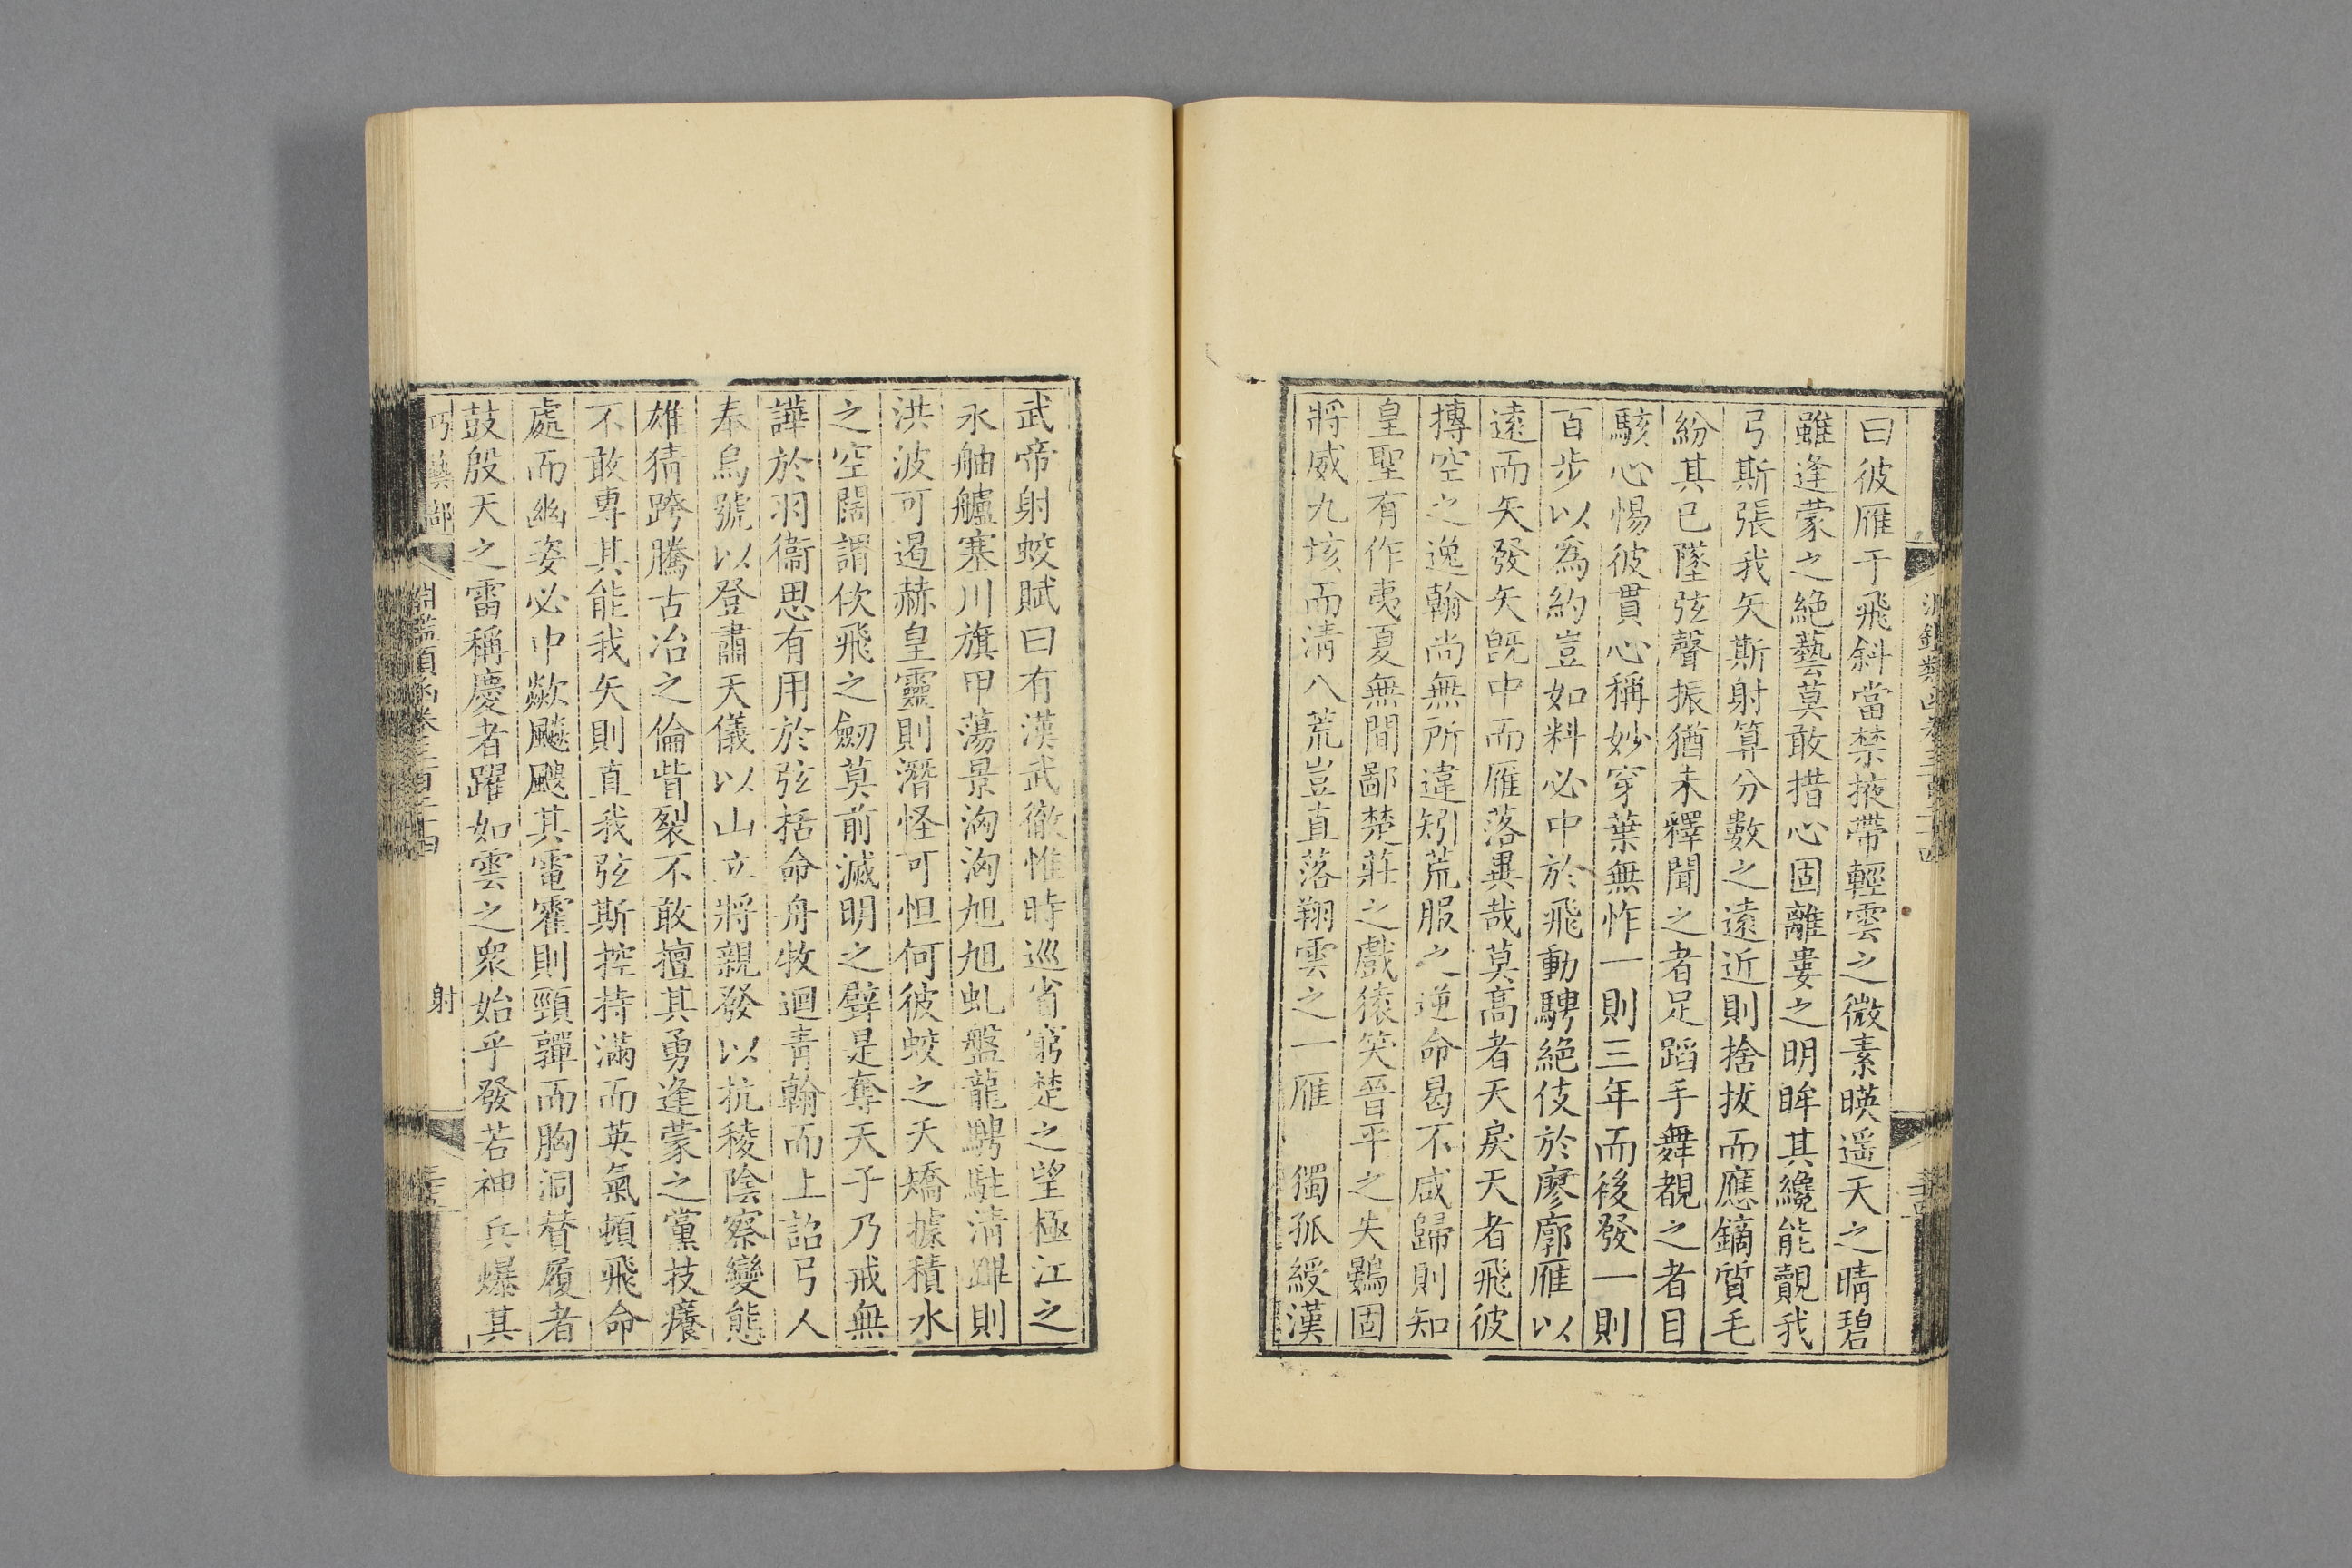 曰彼雁于飛斜當禁掖帶輕雲之微素暎遥天之晴碧
雖逢蒙之絶藝莫敢措心固離婁之明眸其纔能覿我
弓斯張我矢斯射算分數之遠近則捨拔而應鏑質毛
紛其已墜弦聲振猶未釋聞之者足蹈手舞覩之者目
駭心惕彼貫心稱妙穿葉無怍一則三年而後發一則
百步以爲約豈如料必中於飛動騁絶伎於廖廓雁以
遠而矢發矢旣中而雁落異哉莫高者天戾天者飛彼
摶空之逸翰尚無所違矧荒服之逆命曷不咸歸則知
皇聖有作夷夏無間鄙楚莊之戲猿笑晉平之失鷃固
將威九垓而淸八荒豈直落翔雲之一雁 獨孤綬漢
武帝射蛟賦曰有漢武徹惟時巡省窮楚之望極江之
永舳艫塞川旗甲蕩景洶洶旭旭虬盤龍騁駐淸蹕則
洪波可遏赫皇靈則潛怪可怛何彼蛟之夭矯據積水
之空闊謂佽飛之劒莫前滅明之璧是奪天子乃戒無
譁於羽衞思有用於弦栝命舟牧迴靑翰而上詔弓人
奉烏號以登肅天儀以山立將親發以抗稜陰察變態
雄猜跨騰古冶之倫眥裂不敢擅其勇逢蒙之黨技癢
不敢專其能我矢則直我弦斯控持滿而英氣頓飛命
處而幽姿必中歘颷颼其電霍則頸嚲而胸洞贊履者
鼓殷天之雷稱慶者躍如雲之衆始乎發若神兵爆其
巧藝部
淵鑑類函卷三百二十四
射